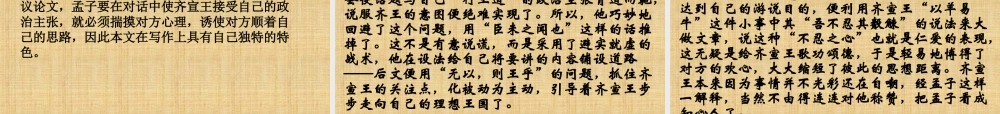 议论文，孟子要在对话中使齐宣王接受自己的政
治主张，就必须揣摸对方心理，诱使对方顺着自
己的思路，因此本文在写作上具有自己独特的特
色。
说服齐王的意图便绝难实现了。所以，他巧妙地
回避了这个问题，用“臣未之闻也”这样的话推
掉了。这不是有意说谎，而是采用了避实就虚的
战术，他在设法给自己将要讲的内容铺设道路
——后文便用“无以，则王乎”的问题，抓住齐
宣王的关注点，化被动为主动，引导着齐宣王步
步走向自己的理想王国了。
达到自己的游说目的，便利用齐宣王“以羊易
牛”这件小事中其“吾不忍其觳觫”的说法来大
做文章，说这种“不忍之心”也就是仁爱的表现，
这无疑是给齐宣王歌功颂德，于是轻易地博得了
对方的欢心，大大缩短了彼此的思想距离。齐宣
王本来因为事情并不光彩还在自嘲，经孟子这样
一解释，当然不由得连连对他称赞，把孟子看成
知心人了。